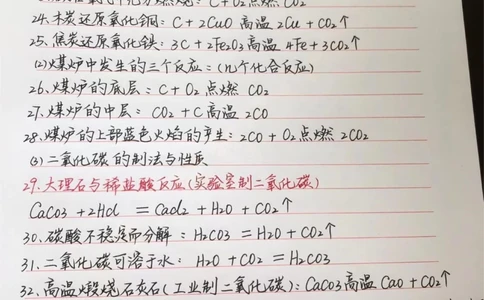 气中充分燃烧：C+O₂点燃 CO₂
24.木炭还原氧化铜：C+2CuO高温 2Cu+CO₂↑
25.焦炭还原氧化铁：3C+2Fe₂O₃高温 4Fe+3CO₂↑
(2)煤炉中发生的三个反应：(几个化合反应)
26.煤炉的底层：C+O₂点燃 CO₂
27.煤炉的中层：CO₂+C高温 2CO
28.煤炉的上部蓝色火焰的产生：2CO+O₂点燃 2CO₂
(3)二氧化碳的制法与性质
29.大理石与稀盐酸反应(实验室制二氧化碳)
CaCO₃+2Hcl =Cacl₂+H₂O+CO₂↑
30.碳酸不稳定而分解：H₂CO₃=H₂O+CO₂↑
31.二氧化碳可溶于水：H₂O+CO₂=H₂CO₃
32.高温煅烧石灰石(工业制二氧化碳)：CaCO₃高温 CaO+CO₂↑